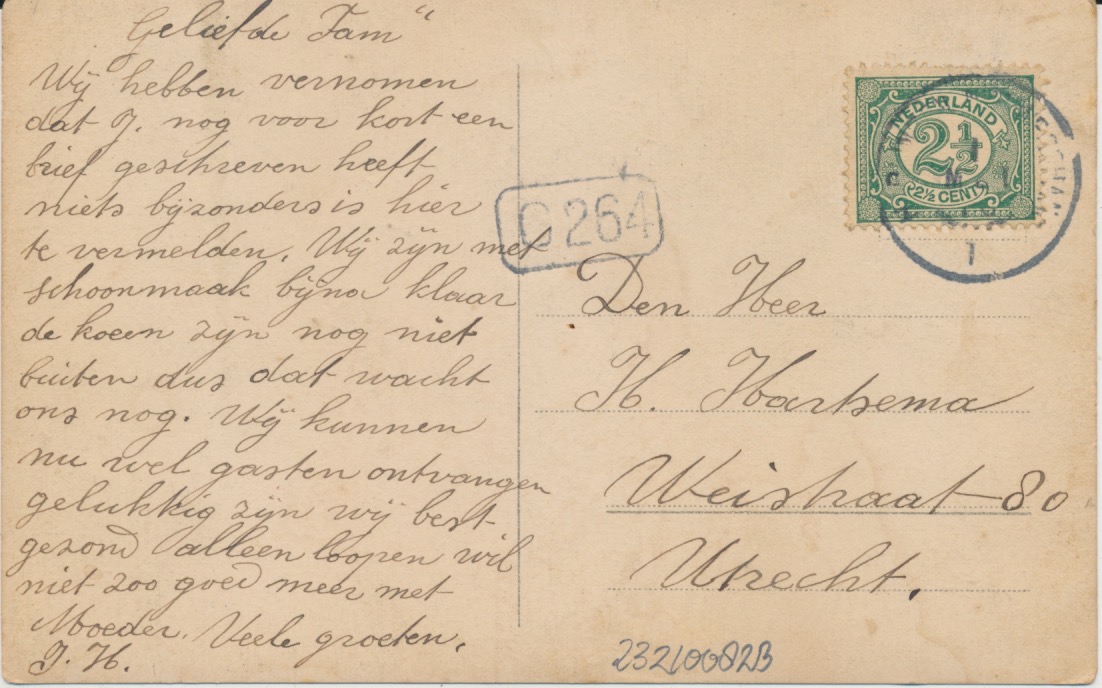 Geliefde Fam"
Wij hebben vernomen
dat J. nog voor kort een
brief geschreven heeft
niets bijzonders is hier
te vermelden. Wij zijn met
schoonmaak bijna klaar
de koeen zijn nog niet
buiten dus dat wacht
ons nog. Wij kunnen
nu wel gasten ontvangen
gelukkig zijn wij best
gezond alleen loopen wil
niet zoo goed meer met
Moeder. Veele groeten.
J. H.
NEDERLAND
2½
2½ CENT
C 264
1
Den Heer
H. Hartsema
Weistraat 80
Utrecht.
232100823